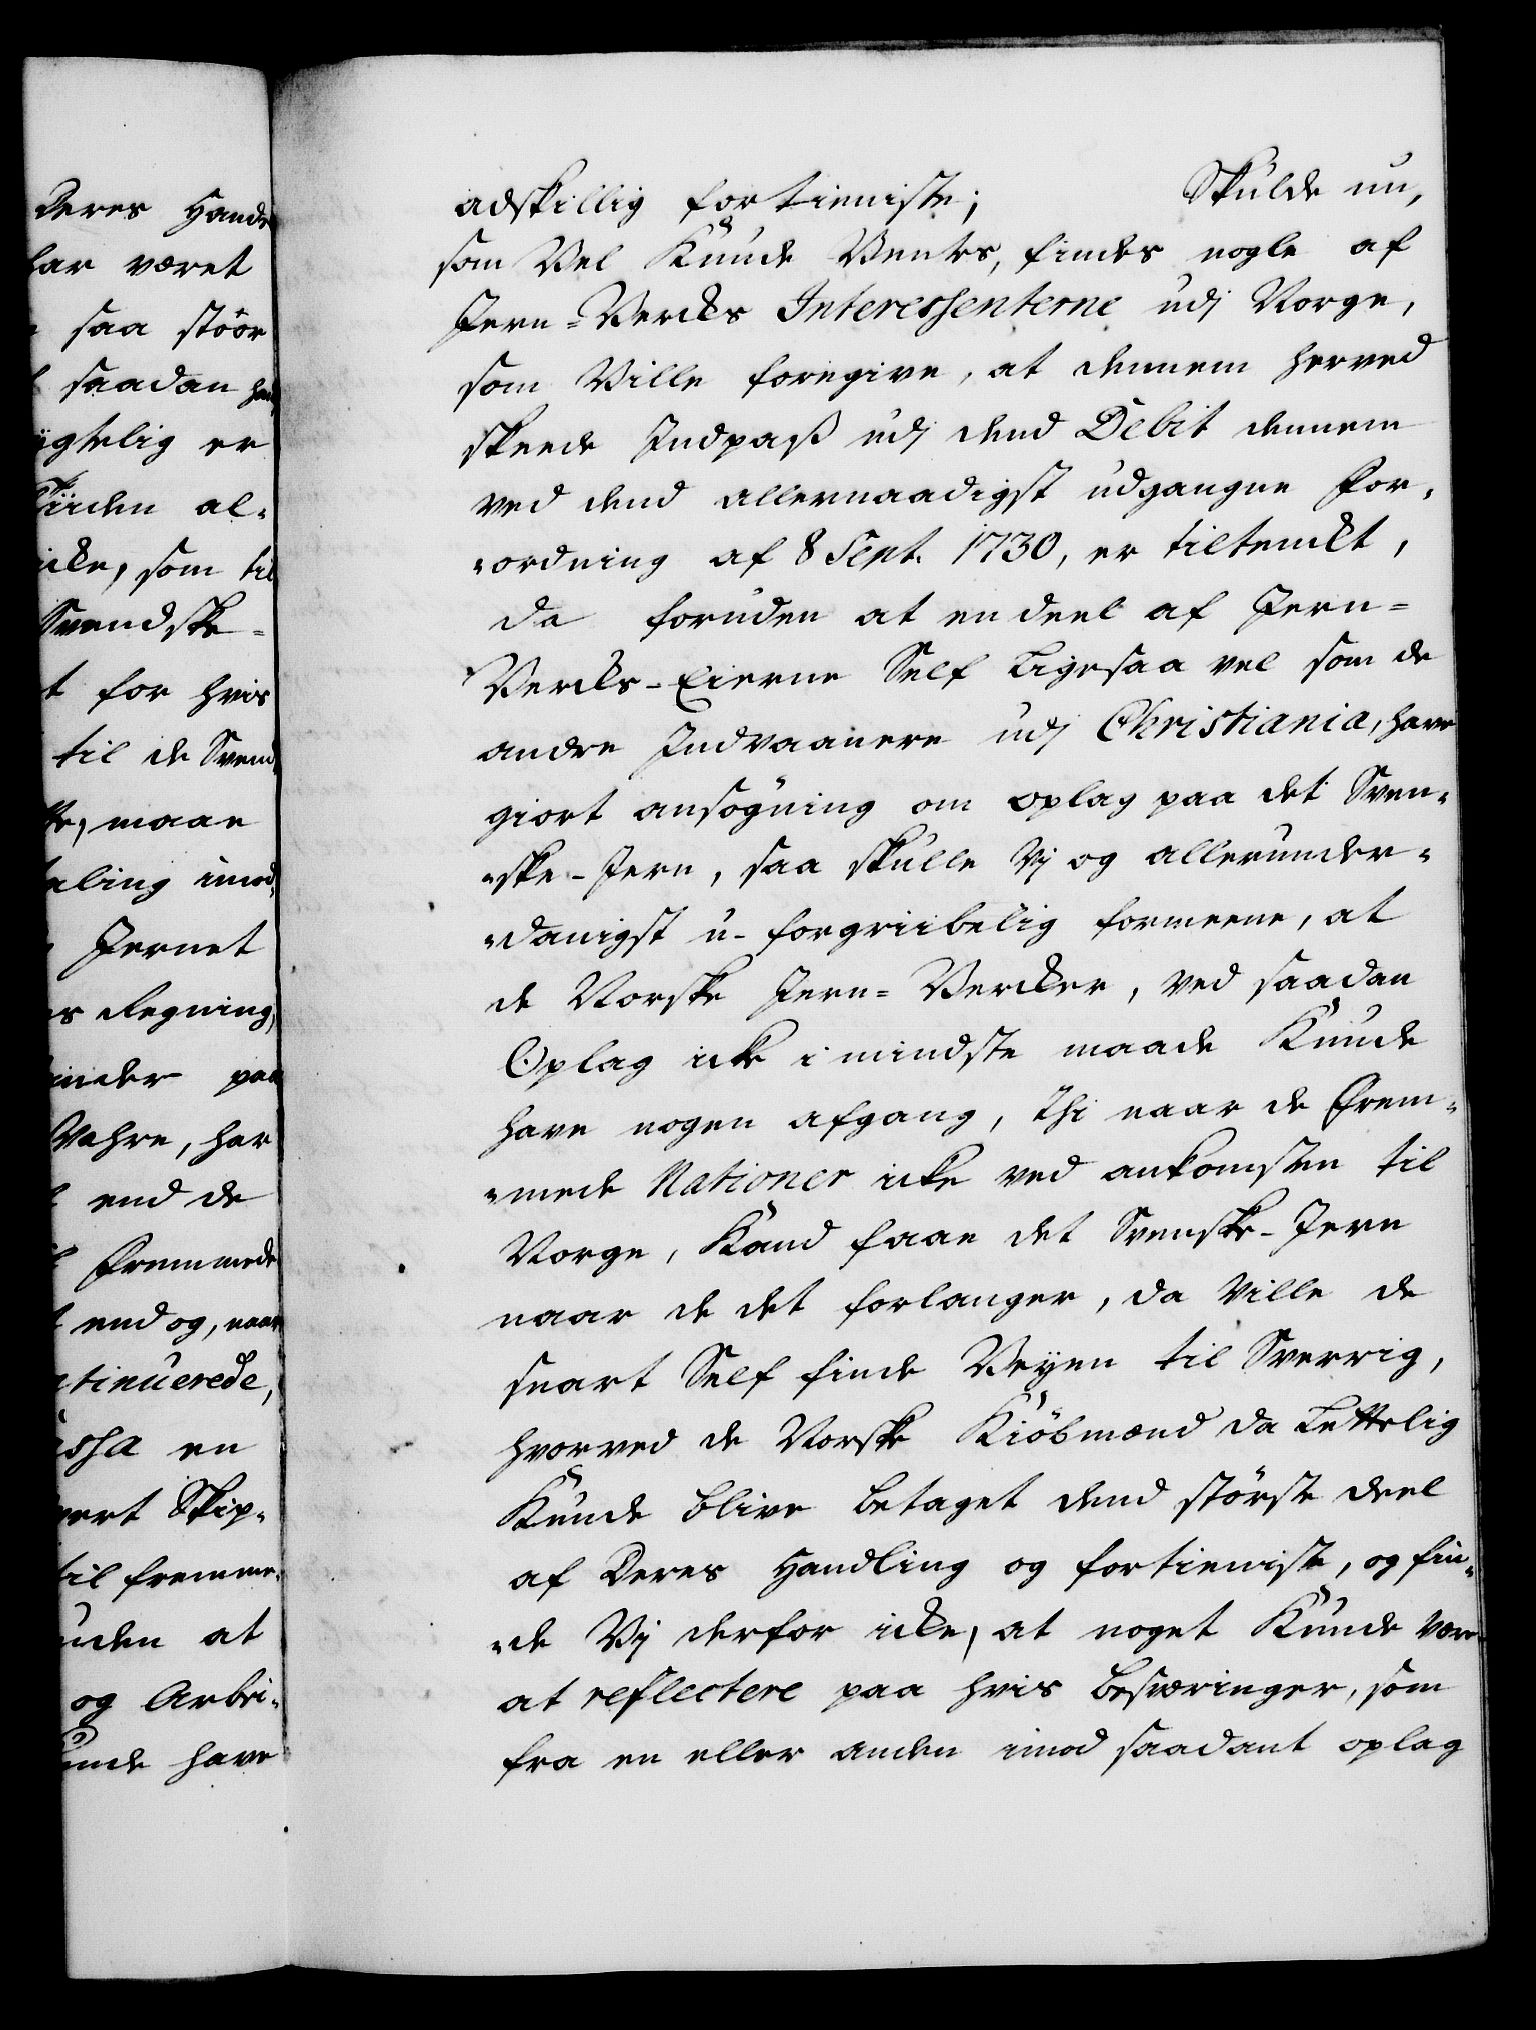 Deres Hande
har været
saa stöör
saadan
igtelig er
Tiiden al-
icke, som til
Svendske-
t for hvis
til de Svend
maae
aling imod
Jernet
es Regning,
under paa
Vahre, har
end de
Fremmede
end og, naar
ntinuerede,
en
vert Skip-
til fremme-
uden at
og Arbei-
unde have
adskillig fortieniste; Skulde nu,
som Vel Kunde Ventes, findes nogle af
Jern-Vercks Interessenterne udj Norge,
som Ville foregive, at dennem herved
skeede Indpaß udj dend Debit dennem
ved dend allernaadigst udgangne For-
-ordning af 8 Sept. 1730, er tiltenckt,
da foruden at en deel af Jern-
Vercks-Eierne Self Ligesaa vel som de
andre Indvaanere udj Christiania, have
giort ansögning om oplag paa det Sven-
-ske-Jern, saa skulle Vj og allerunder-
-danigst u-forgriibelig formeene, at
de Norske Jern-Vercker, ved saadan
Oplag icke i mindste maade Kunde
have nogen afgang, Thi naar de Frem-
-mede Nationer icke ved ankomsten til
Norge, Kand faae det Svenske-Jern
naar de det forlanger, da Ville de
snart Self finde Veyen til Sverrig,
hvorved de Norske Kiöbmænd da Lettelig
Kunde blive betaget dend störste deel
af Deres Handling og fortieniste, og fin-
-de Vj derfor icke, at noget Kunde være
at reflectere paa hvis besværinger, som
fra en eller anden imod saadant oplag